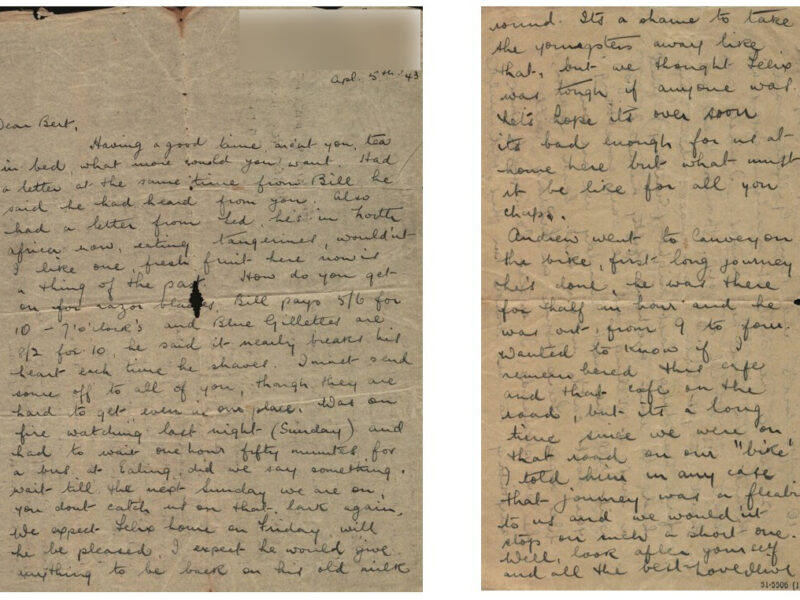 Apl. 5th '43
Dear Bert,
Having a good time, arn't you, tea
in bed, what more could you want. Had
a letter at the same time from Bill he
said he had heard from you. Also
had a letter from Ted, he's in North
Africa now, eating tangerines, wouldn't
I like one, fresh fruit here now is
a thing of the past. How do you get
on for razor blades, Bill pays 5/6 for
10 - 7 o'clock's and Blue Gillettes are
2 for 10, he said it nearly breaks his
heart each time he shaves. I must send
some off to all of you, though they are
hard to get even in one place. Was on
fire watching last night (Sunday) and
had to wait one hour fifty minutes for
a bus at Ealing, did we say something.
wait till the next Sunday we are on,
you dont catch us on that lark again.
We expect Felix home on Friday will
he be pleased, I expect he would give
anything to be back on his old milk
round. Its a shame to take
the youngsters away like
that, but we thought Felix
was tough if anyone was.
Let's hope its over soon
its bad enough for us at
home here but what must
it be like for all you
chaps.
Andrew went to Canvey on
the bike, first long journey
he's done, he was there
for half an hour and he
was out from 9 to four.
Wanted to know if I
remembered this cafe
and that cafe on the
road, but its a long
time since we were on
that road on our "bike"
I told him in any case
that journey was a fleabite
to us and we would'nt
stop on such a short one.
Well, look after yourself
and all the best
51-5506 (1